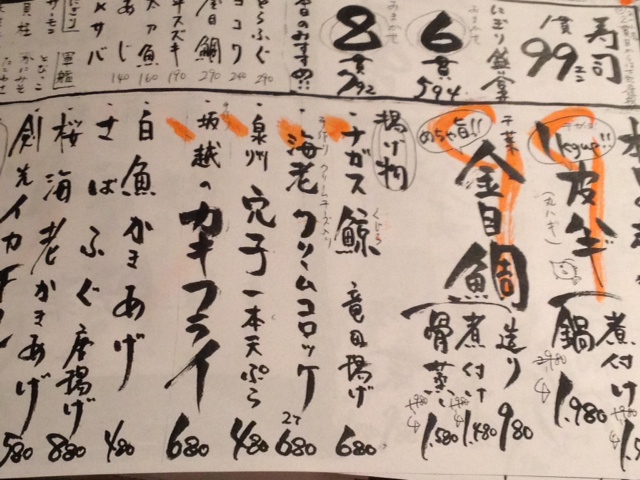 寿司
1貫
99エン
にぎり盛合
おまかせ
6貫 594
おまかせ
8貫 792
本日のおすすめ!!
とらふぐ 290
ヨコワ 240
金目鯛 290
キスズキ 190
太刀魚 160
あじ 140
〆サバ
軍艦
とびっこ
煮付け
1kgup!!
皮ハギ
鍋 1,980
千葉
めちゃ旨!!
金目鯛
造り 980
煮付け 1,480
骨蒸し 1,580
揚げ物
・ナガス鯨 竜田揚げ 680
くじら
・海老クリームコロッケ 2ケ 680
・泉州 穴子一本天ぷら 480
・坂越のカキフライ 680
・白魚かきあげ 480
・さばふぐ 唐揚げ 880
・桜海老かきあげ 580
・剣先イカ